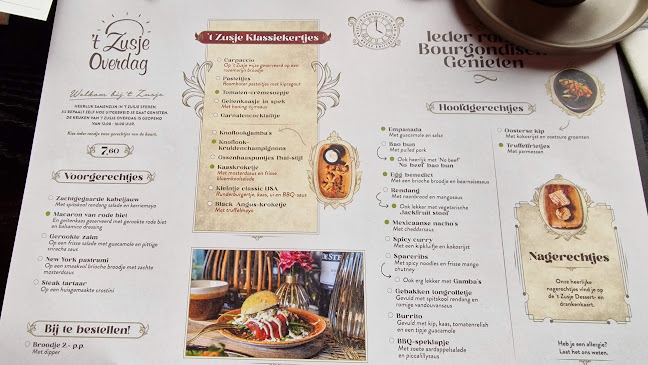 't Zusje
Overdag
Welkom bij 't Zusje
HEERLIJK SAMENZIJN IN 'T ZUSJE SFEREN.
DE KEUKEN VAN 'T ZUSJE OVERDAG IS GEOPEND
VAN 12:00 - 16:00 UUR.
Kies ieder rondje twee gerechtjes van de kaart.
7,60
Voorgerechtjes
Zachtgegaarde kabeljauw
Met rendang salade en kerriemayo
Macaron van rode biet
En geitenkaas geserveerd met gerookte rode biet
en balsamico dressing
Gerookte zalm
Op een frisse salade met guacamole en pittige
sriracha saus
New York pastrami
Op een smakelijk brioche broodje met zachte
mosterdsaus
Steak tartaar
Op een huisgemaakte crostini
Bij te bestellen!
Broodje 2,- p.p.
Met dipper
't Zusje Klassiekertjes
Carpaccio
Op 't Zusje wijze geserveerd op een
rosemarijn broodje
Pasteitjes
Roomboter pasteitjes met kipragout
Tomaten-crèmesoepje
Geitenkaasje in spek
Met honing tijmsaus
Garnalencocktailtje
Knoflookgamba's
Knoflook-
kruidenchampignons
Ossenhaaspuntjes Thai-stijl
Kaaskroketje
Met mosterdsaus en frisse
bloemkoolsalade
Kleintje classic USA
Runderburgertje, kaas, ui en BBQ-saus
Black-Angus-kroketje
Met truffelmayo
Ieder
Bourgondisch
Genieten
Hoofdgerechtjes
Empanada
Met guacamole en salsa
Bao bun
Met pulled pork
Ook heerlijk met "No beef"
"No beef" bao bun
Egg benedict
Met een brioche broodje en bearnaisesaus
Rendang
Met naanbrood en mangosaus
Ook lekker met vegetarische
Jackfruit stoof
Mexicaanse nacho's
Met cheddarsaus
Spicy curry
Met een kipkluifje en kokosrijst
Spareribs
Met spicy noodles en frisse mango
chutney
Ook erg lekker met Gamba's
Gebakken tongrolletje
Gevuld met spitskool rendang en
romige vandouvansaus
Burrito
Gevuld met kip, kaas, tomatenrelish
en een tipje guacamole
BBQ-speklapje
Met zoete aardappelsalade
en piccalillysaus
Oosterse kip
Met kokosrijst en oosterse groenten
Truffelfrietjes
Met parmezaan
Nagerechtjes
Onze heerlijke
nagerechtjes vind je op
de 't Zusje Dessert- en
drankenkaart.
Heb je een allergie?
Laat het ons weten.